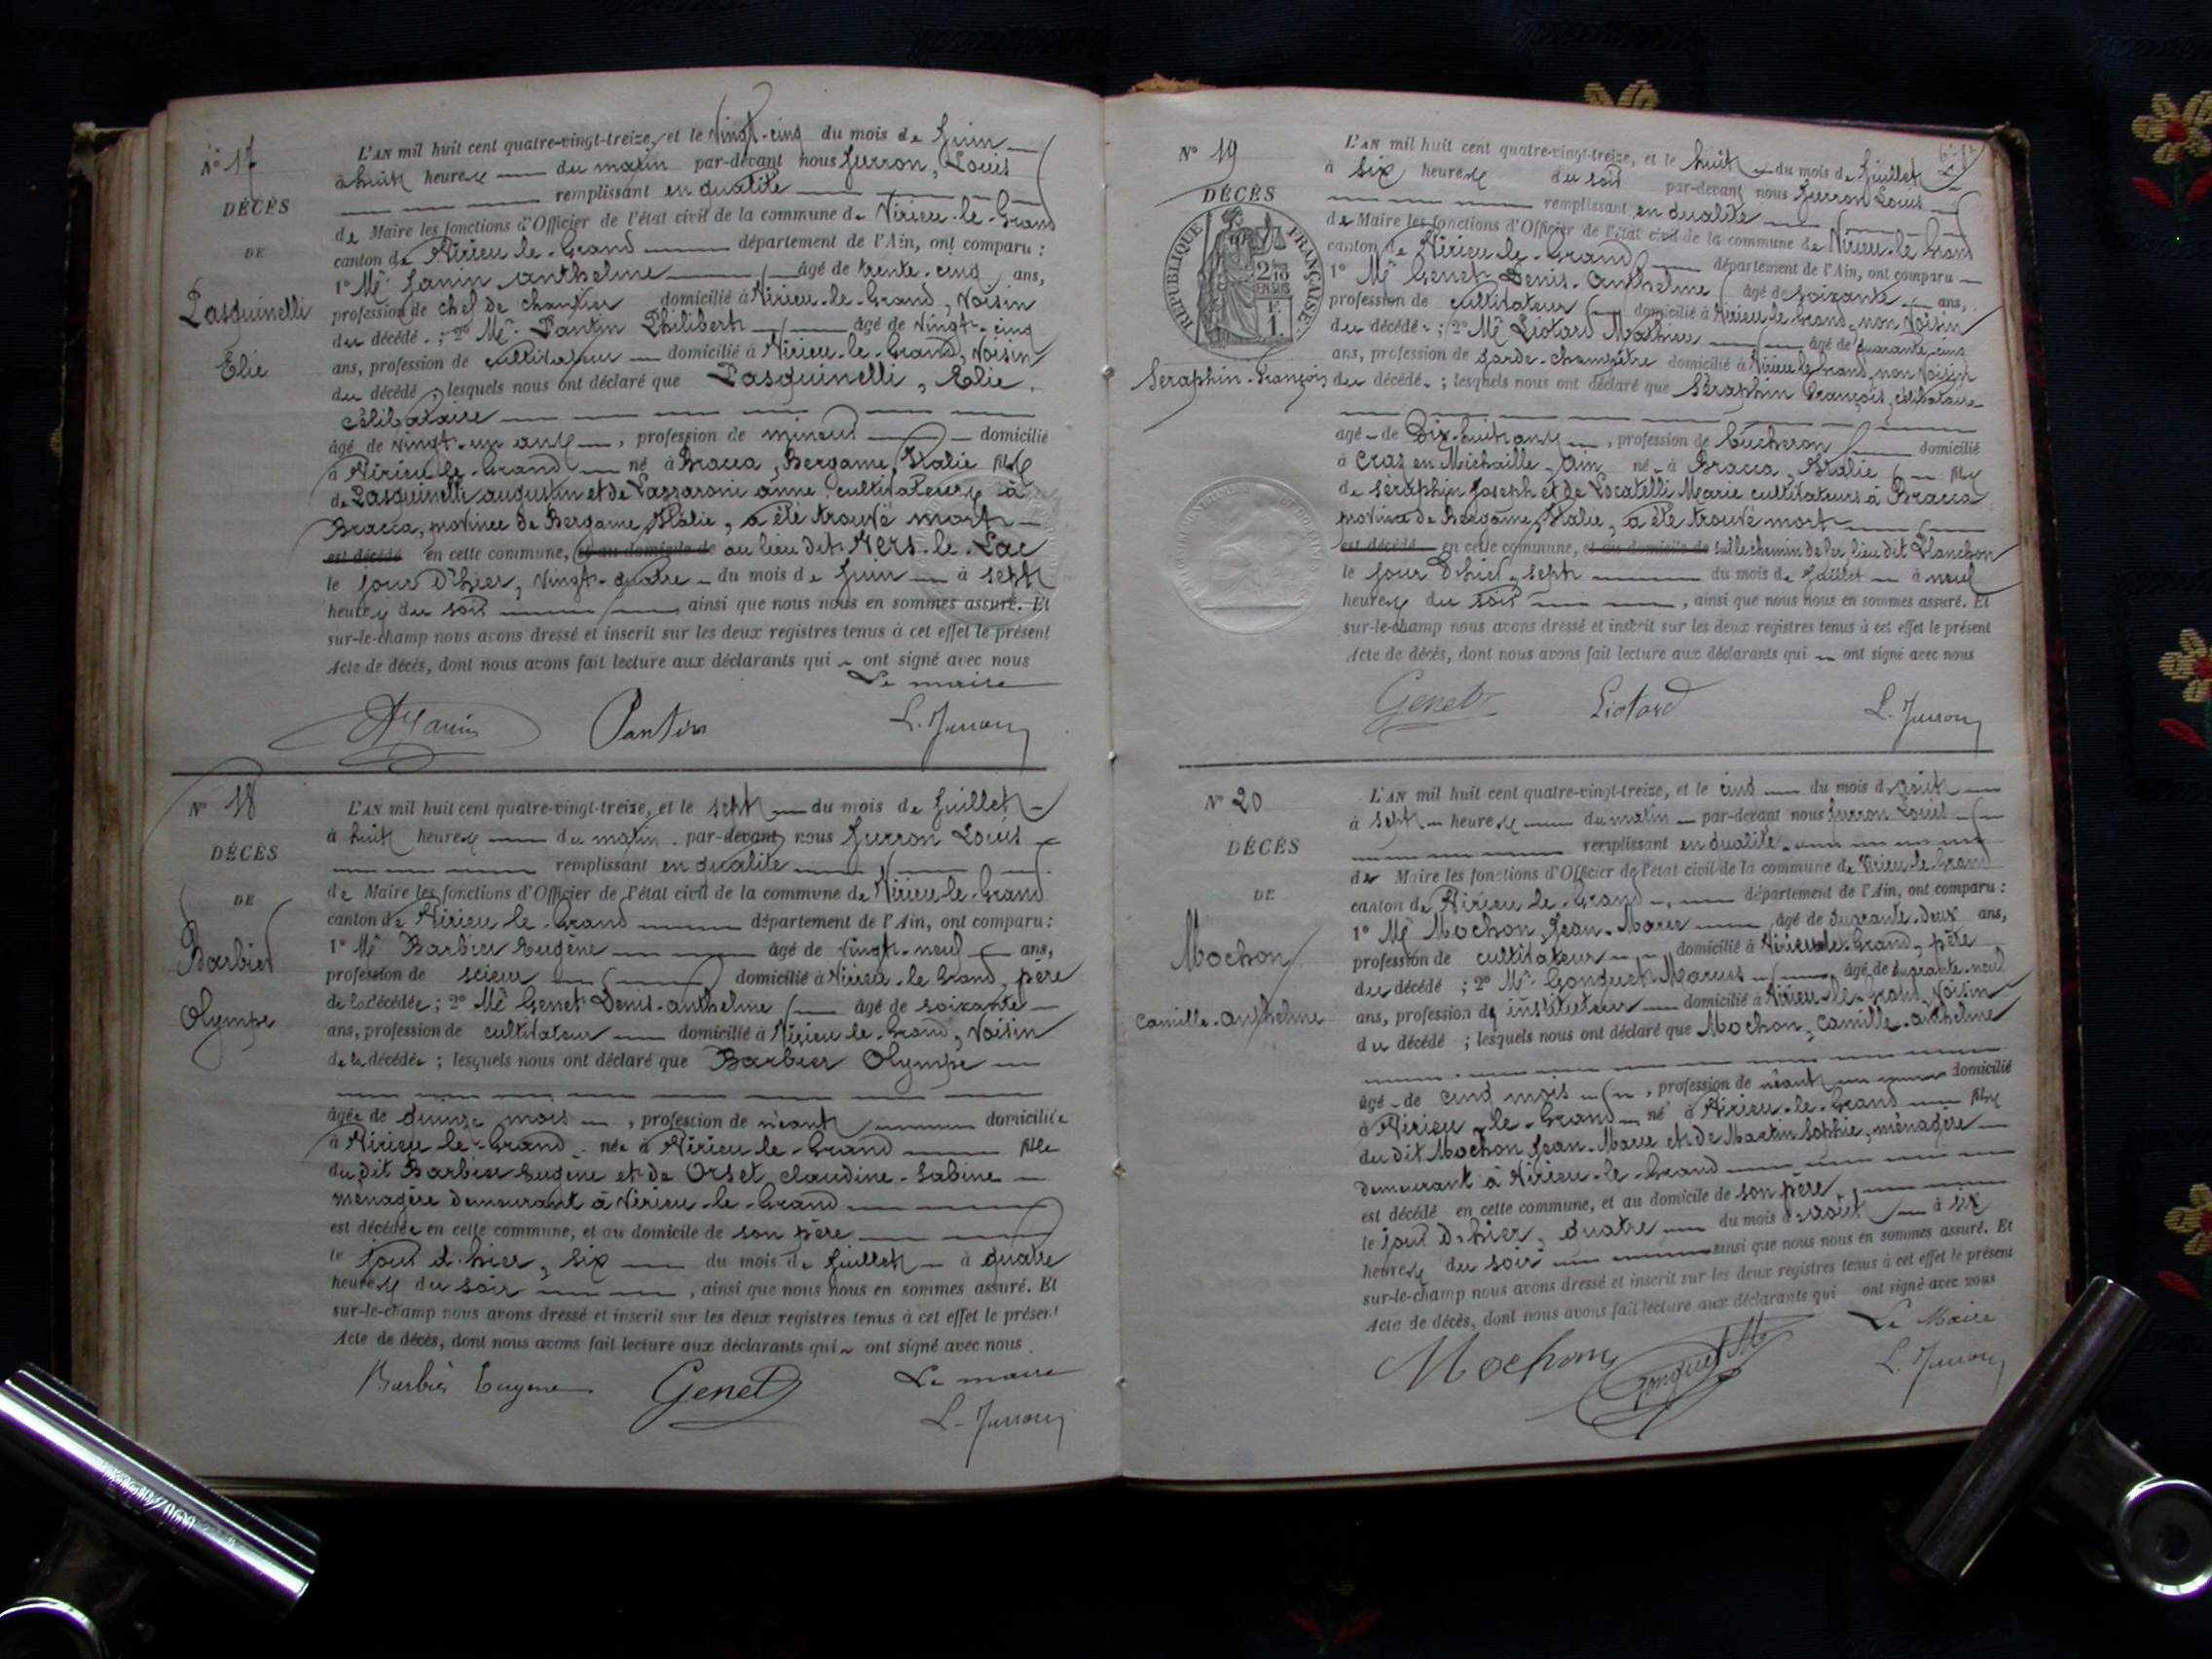 N° 17
DÉCÈS
DE
Pasquinelli
Elie
L'AN mil huit cent quatre-vingt-treize, et le vingt-cinq du mois de Juin
à huit heures du matin par-devant nous Jurron, Louis
remplissant en qualité
de Maire les fonctions d'Officier de l'état civil de la commune de Virieu-le-Grand
canton de Virieu-le-Grand département de l'Ain, ont comparu :
1° Mr Janin Anthelme âgé de trente-cinq ans,
profession de chef de chantier domicilié à Virieu-le-Grand, voisin
du décédé ; 2° Mr Pantin Philibert âgé de vingt-cinq
ans, profession de cultivateur domicilié à Virieu-le-Grand, voisin
du décédé, lesquels nous ont déclaré que Pasquinelli, Elie,
célibataire
âgé de vingt-un ans, profession de mineur domicilié
à Virieu-le-Grand né à Bracca, Bergame, Italie fils
de Pasquinelli augustin et de Lazzaroni anne, cultivateurs à
Bracca, province de Bergame, Italie, a été trouvé mort
est décédé en cette commune, et au domicile de au lieu dit Vers-le-Lac
le jour d'hier, vingt-quatre du mois de Juin à sept
heures du soir ainsi que nous nous en sommes assuré. Et
sur-le-champ nous avons dressé et inscrit sur les deux registres tenus à cet effet le présent
Acte de décès, dont nous avons fait lecture aux déclarants qui ont signé avec nous
Le maire
Janin Pantin L. Jurron
N° 18
DÉCÈS
DE
Barbier
Olympe
L'AN mil huit cent quatre-vingt-treize, et le sept du mois de Juillet
à huit heures du matin par-devant nous Jurron Louis
remplissant en qualité
de Maire les fonctions d'Officier de l'état civil de la commune de Virieu-le-Grand
canton de Virieu-le-Grand département de l'Ain, ont comparu :
1° Mr Barbier Eugène âgé de vingt-neuf ans,
profession de scieur domicilié à Virieu-le-Grand, père
de la décédée ; 2° Mr Genet Denis-anthelme âgé de soixante
ans, profession de cultivateur domicilié à Virieu-le-Grand, voisin
de la décédée ; lesquels nous ont déclaré que Barbier Olympe
âgée de quinze mois, profession de néant domiciliée
à Virieu-le-Grand née à Virieu-le-Grand fille
du dit Barbier Eugène et de Orset, claudine-Sabine
ménagère demeurant à Virieu-le-Grand
est décédée en cette commune, et au domicile de son père
le jour d'hier, six du mois de Juillet à quatre
heures du soir, ainsi que nous nous en sommes assuré. Et
sur-le-champ nous avons dressé et inscrit sur les deux registres tenus à cet effet le présent
Acte de décès, dont nous avons fait lecture aux déclarants qui ont signé avec nous.
Le maire
Barbier Eugene Genet L. Jurron
N° 19
DÉCÈS
RÉPUBLIQUE FRANÇAISE
2/10 EN SUS
1 F.
Séraphin-François
L'AN mil huit cent quatre-vingt-treize, et le huit du mois de Juillet
à six heures du soir par-devant nous Jurron Louis
remplissant en qualité
de Maire les fonctions d'Officier de l'état civil de la commune de Virieu-le-Grand
canton de Virieu-le-Grand département de l'Ain, ont comparu
1° Mr Genet Denis-Anthelme âgé de soixante ans,
profession de cultivateur domicilié à Virieu-le-Grand, non voisin
du décédé ; 2° Mr Liotard Mathieu âgé de quarante-cinq
ans, profession de garde-champêtre domicilié à Virieu-le-Grand, non voisin
du décédé ; lesquels nous ont déclaré que Séraphin François, célibataire
âgé de Dix-huit ans, profession de bûcheron domicilié
à Craz en Michaille, Ain né à Bracca, Italie fils
de Séraphin Joseph et de Locatelli Marie cultivateurs à Bracca
province de Bergame, Italie, a été trouvé mort
est décédé en cette commune, et au domicile de sur le chemin de fer, lieu dit Planchon
le jour d'hier, sept du mois de Juillet à neuf
heures du soir, ainsi que nous nous en sommes assuré. Et
sur-le-champ nous avons dressé et inscrit sur les deux registres tenus à cet effet le présent
Acte de décès, dont nous avons fait lecture aux déclarants qui ont signé avec nous
Genet Liotard L. Jurron
N° 20
DÉCÈS
DE
Mochon
Camille-anthelme
L'AN mil huit cent quatre-vingt-treize, et le cinq du mois d'août
à sept heures du matin par-devant nous Jurron Louis
remplissant en qualité
de Maire les fonctions d'Officier de l'état civil de la commune de Virieu-le-Grand
canton de Virieu-le-Grand département de l'Ain, ont comparu :
1° Mr Mochon, Jean-Marie âgé de quarante-deux ans,
profession de cultivateur domicilié à Virieu-le-Grand, père
du décédé ; 2° Mr Gonguet Marius âgé de quarante-neuf
ans, profession de instituteur domicilié à Virieu-le-Grand, voisin
du décédé ; lesquels nous ont déclaré que Mochon, Camille-anthelme
âgé de cinq mois, profession de néant domicilié
à Virieu-le-Grand né à Virieu-le-Grand fils
du dit Mochon Jean-Marie et de Martin Sophie, ménagère
demeurant à Virieu-le-Grand
est décédé en cette commune, et au domicile de son père,
le jour d'hier, quatre du mois d'août à six
heures du soir ainsi que nous nous en sommes assuré. Et
sur-le-champ nous avons dressé et inscrit sur les deux registres tenus à cet effet le présent
Acte de décès, dont nous avons fait lecture aux déclarants qui ont signé avec nous
Le Maire
Mochon Gonguet M L. Jurron